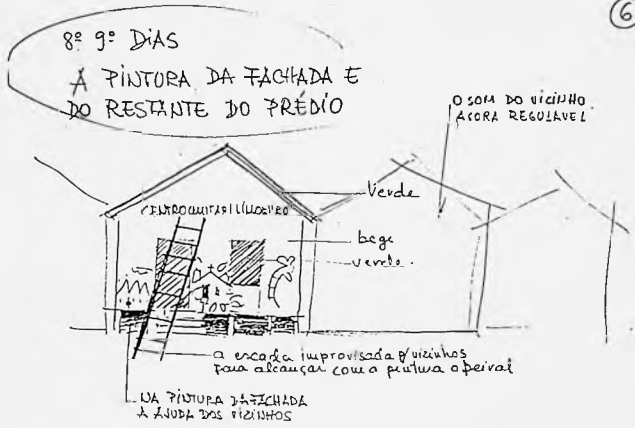 6
8º 9º DIAS
A PINTURA DA FACHADA E
DO RESTANTE DO PRÉDIO
O SOM DO VIZINHO.
AGORA REGULAVEL
Verde
CENTRO
bege
verde.
a escada improvisada p/ vizinhos
para alcançar com a pintura o beiral
NA PINTURA DA FACHADA
A AJUDA DOS VIZINHOS